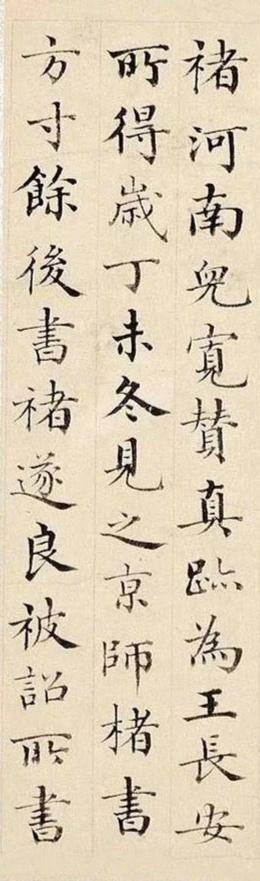 褚河南兒寬贊真跡為王長安
所得歲丁未冬見之京師楮書
方寸餘後書褚遂良被詔所書